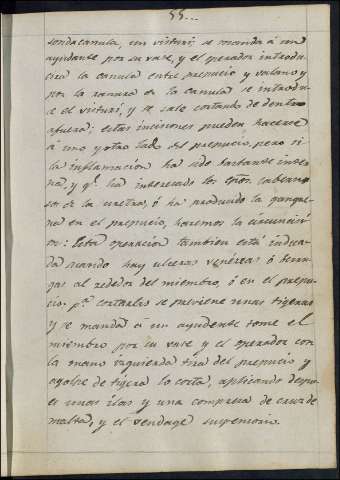 55...
sonda canula, un visturi; se manda á un
ayudante por su vase, y el operador introdu-
cirá la canula entre prepucio y valano y
por la ranura de la canula se introdu-
ce el visturi, y se sale cortando de dentro
afuera; estas incisiones pueden hacerse
á uno y otro lado del prepucio, pero si
la inflamacion ha sido bastante inte
na, y qe. ha interesado los cpos. caberno
sos de la uretra, ó ha producido la gangre
na en el prepucio, haremos la circuncisio
n: Esta operacion tambien está indica-
da cuando hay ulceras venéreas ó berru
gas al rededor del miembro, ó en el prepu
cio. pa. cortarlas se previene unas tigeras
y se manda á un ayudente tome el
miembro por su vase y el operador con
la mano izquierda tira del prepucio y
agolpe de tigera lo corta, aplicando despu
es unas ilas y una compresa de cruz de
malta, y el vendage suspensorio.